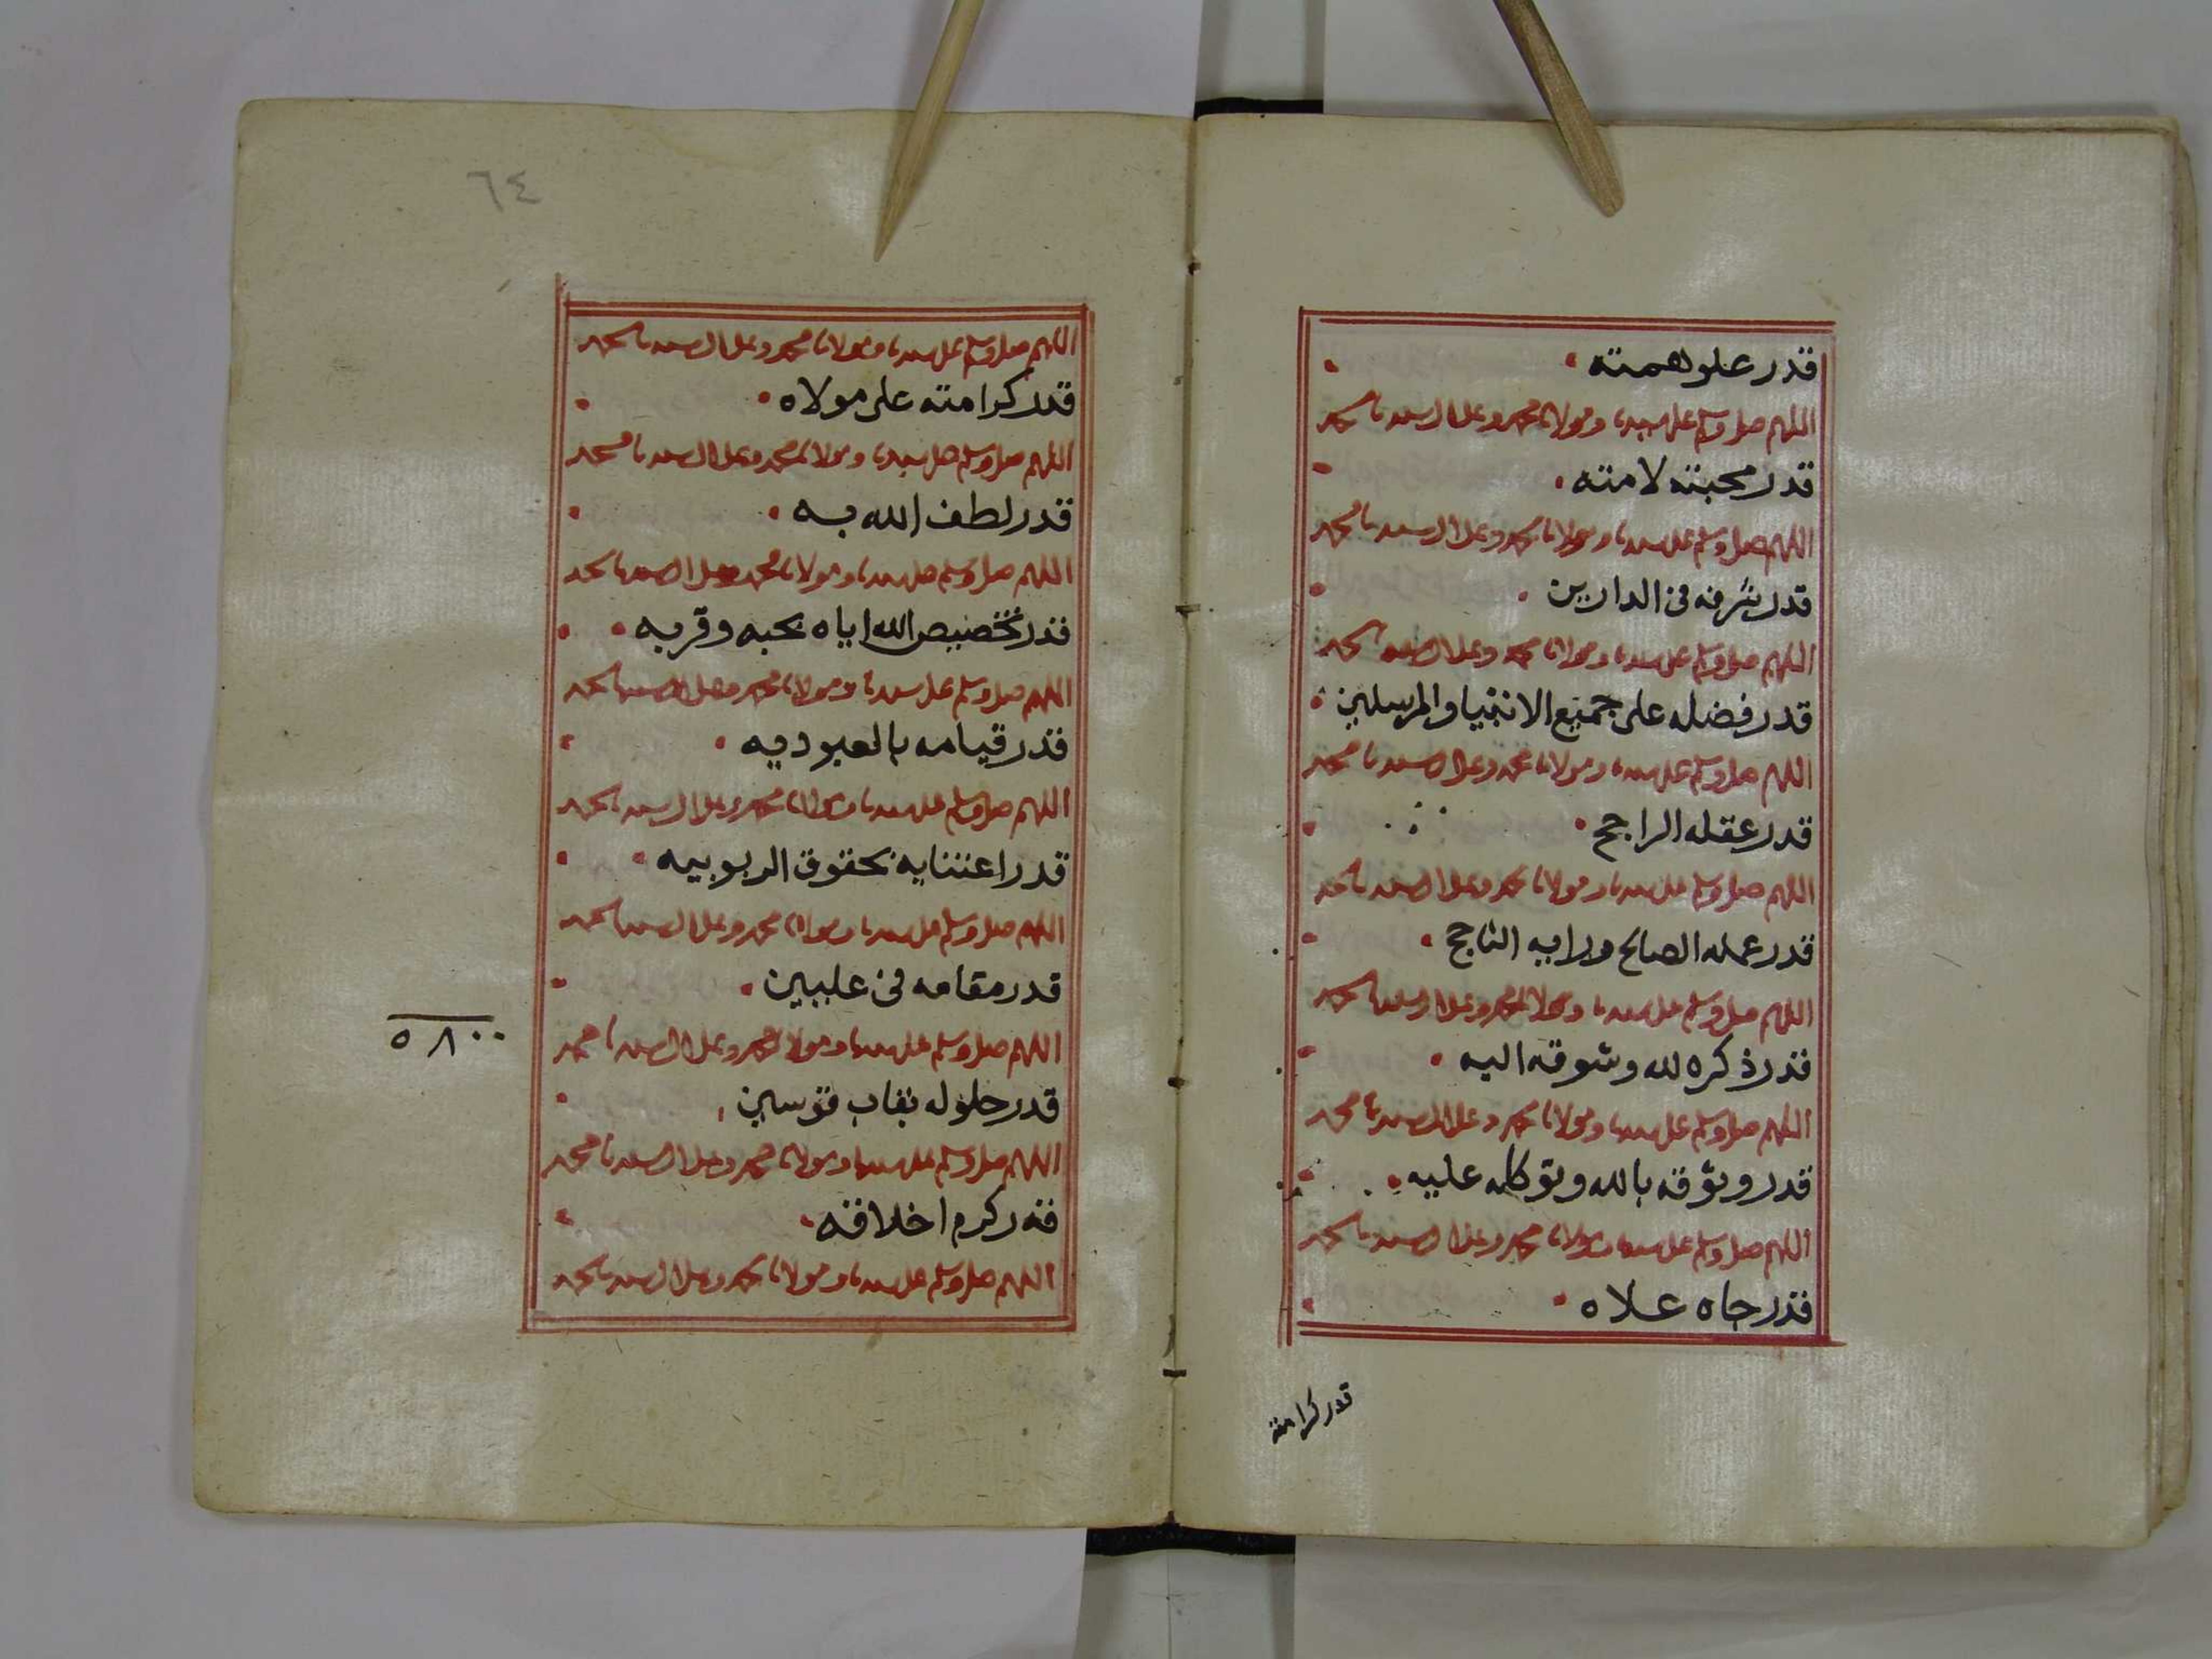 قدر علو همته
اللهم صل وسلم على سيدنا ومولانا محمد وعلى ال سيدنا محمد
قدر محبته لامته
اللهم صل وسلم على سيدنا ومولانا محمد وعلى ال سيدنا محمد
قدر شرفه فى الدارين
اللهم صل وسلم على سيدنا ومولانا محمد وعلى ال سيدنا محمد
قدر فضله على جميع الانبيا والمرسلين
اللهم صل وسلم على سيدنا ومولانا محمد وعلى ال سيدنا محمد
قدر عقله الراجح
اللهم صل وسلم على سيدنا ومولانا محمد وعلى ال سيدنا محمد
قدر عمله الصالح ورايه الناجح
اللهم صل وسلم على سيدنا ومولانا محمد وعلى ال سيدنا محمد
قدر ذكره لله وشوقه اليه
اللهم صل وسلم على سيدنا ومولانا محمد وعلى ال سيدنا محمد
قدر وثوقه بالله وتوكله عليه
اللهم صل وسلم على سيدنا ومولانا محمد وعلى ال سيدنا محمد
قدر جاه علاه
قدر كرامته
٦٤
اللهم صل وسلم على سيدنا ومولانا محمد وعلى ال سيدنا محمد
قدر كرامته على مولاه
اللهم صل وسلم على سيدنا ومولانا محمد وعلى ال سيدنا محمد
قدر لطف الله به
اللهم صل وسلم على سيدنا ومولانا محمد وعلى ال سيدنا محمد
قدر تخصيص الله اياه بحبه وقربه
اللهم صل وسلم على سيدنا ومولانا محمد وعلى ال سيدنا محمد
قدر قيامه بالعبوديه
اللهم صل وسلم على سيدنا ومولانا محمد وعلى ال سيدنا محمد
قدر اعتنايه بحقوق الربوبيه
اللهم صل وسلم على سيدنا ومولانا محمد وعلى ال سيدنا محمد
قدر مقامه فى عليين
اللهم صل وسلم على سيدنا ومولانا محمد وعلى ال سيدنا محمد
٥٨٠٠
قدر حلوله بقاب قوسين
اللهم صل وسلم على سيدنا ومولانا محمد وعلى ال سيدنا محمد
قدر كرم اخلاقه
اللهم صل وسلم على سيدنا ومولانا محمد وعلى ال سيدنا محمد